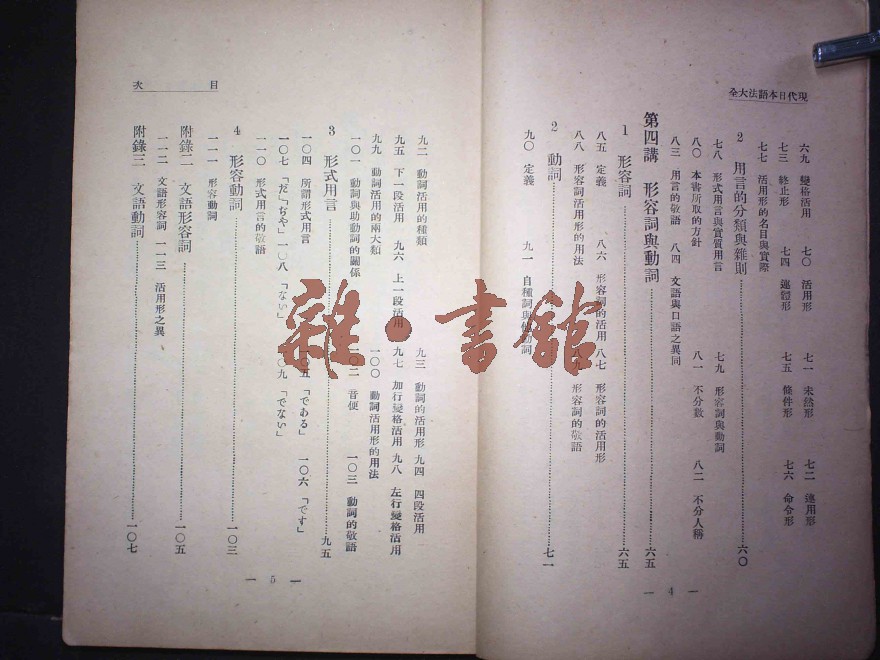 現代日本語法大全
六九 變格活用 七〇 活用形 七一 未然形 七二 連用形
七三 終止形 七四 連體形 七五 條件形 七六 命令形
七七 活用形的名目與實際
2 用言的分類與雜則 六〇
七八 形式用言與實質用言 七九 形容詞與動詞
八〇 本書所取的方針 八一 不分數 八二 不分人稱
八三 用言的敬語 八四 文語與口語之異同
第四講 形容詞與動詞 六五
1 形容詞 六五
八五 定義 八六 形容詞的活用 八七 形容詞的活用形
八八 形容詞活用形的用法 八九 形容詞的敬語
2 動詞 七一
九〇 定義 九一 自種詞與他動詞
— 4 —
目次
九二 動詞活用的種類 九三 動詞的活用形 九四 四段活用
九五 下一段活用 九六 上一段活用 九七 加行變格活用 九八 左行變格活用
九九 動詞活用的兩大類 一〇〇 動詞活用形的用法
一〇一 動詞與助動詞的關係 一〇二 音便 一〇三 動詞的敬語
3 形式用言 九五
一〇四 所謂形式用言 一〇五「である」 一〇六「です」
一〇七「だ」「ぢや」 一〇八「ない」 一〇九「でない」
一一〇 形式用言的敬語
4 形容動詞 一〇三
一一一 形容動詞
附錄二 文語形容詞 一〇五
一一二 文語形容詞 一一三 活用形之異
附錄三 文語動詞 一〇七
— 5 —
雜·書館